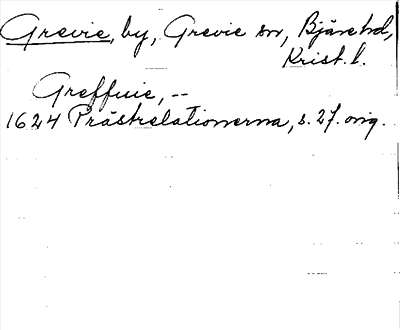 Grevie, by, Grevie sn, Bjäre hd,
Krist. l.
Greffuie, --
1624 Prästrelationerna, s. 27. orig.